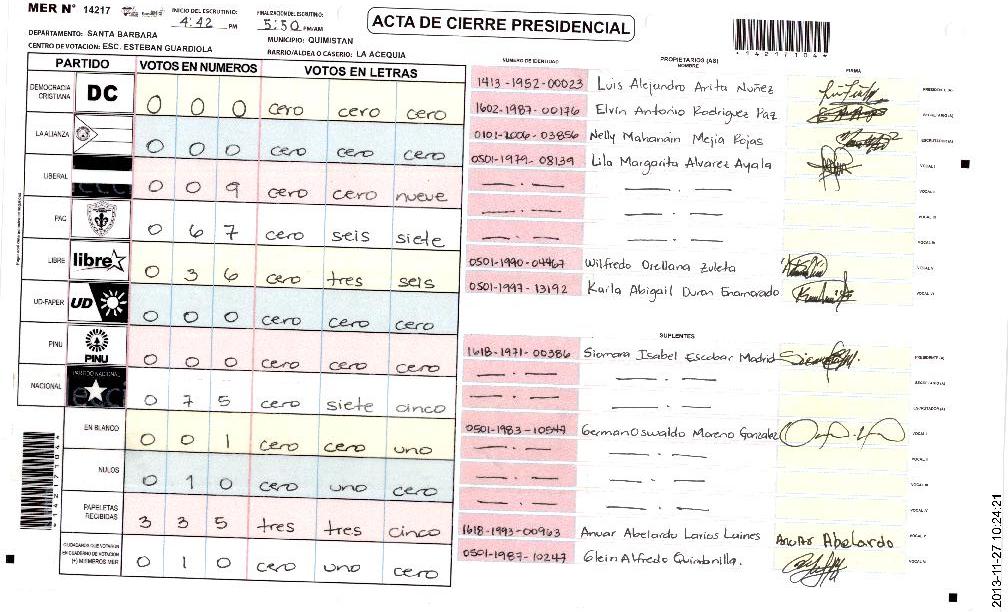 MER N° 14217 INICIO DEL ESCRUTINIO: 4:42 PM FINALIZACION DEL ESCRUTINIO: 5:50 PM/AM
ACTA DE CIERRE PRESIDENCIAL
DEPARTAMENTO: SANTA BARBARA MUNICIPIO: QUIMISTAN
CENTRO DE VOTACION: ESC. ESTEBAN GUARDIOLA BARRIO/ALDEA O CASERIO: LA ACEQUIA
*14217104*
PARTIDO VOTOS EN NUMEROS VOTOS EN LETRAS
DEMOCRACIA CRISTIANA DC 0 0 0 cero cero cero
LA ALIANZA 0 0 0 cero cero cero
LIBERAL 0 0 9 cero cero nueve
PAC 0 6 7 cero seis siete
LIBRE libre 0 3 6 cero tres seis
UD-FAPER UD 0 0 0 cero cero cero
PINU PINU 0 0 0 cero cero cero
NACIONAL PARTIDO NACIONAL 0 7 5 cero siete cinco
EN BLANCO 0 0 1 cero cero uno
NULOS 0 1 0 cero uno cero
PAPELETAS RECIBIDAS 3 3 5 tres tres cinco
CIUDADANOS QUE VOTARON EN CUADERNO DE VOTACION (+) MIEMBROS MER 0 1 0 cero uno cero
*14217104*
NUMERO DE IDENTIDAD PROPIETARIOS (AS) NOMBRE FIRMA
1413-1952-00023 Luis Alejandro Arita Nuñez PRESIDENTE (A)
1602-1987-00176 Elvin Antonio Rodriguez Paz SECRETARIO (A)
0101-2006-03856 Nelly Mahanain Mejia Rojas ESCRUTADOR (A)
0501-1979-08139 Lila Margarita Alvarez Ayala VOCAL I
VOCAL II
VOCAL III
VOCAL IV
0501-1990-04467 Wilfredo Orellana Zuleta VOCAL V
0501-1997-13192 Karla Abigail Duron Enamorado VOCAL VI
SUPLENTES
1618-1971-00386 Siomara Isabel Escobar Madrid PRESIDENTE (A)
SECRETARIO (A)
ESCRUTADOR (A)
0501-1983-10547 German Oswaldo Moreno Gonzalez VOCAL I
VOCAL II
VOCAL III
VOCAL IV
1618-1993-00963 Anuar Abelardo Larios Laines Anuar Abelardo VOCAL V
0501-1987-10247 Glein Alfredo Quintanilla. VOCAL VI
2013-11-27 10:24:21